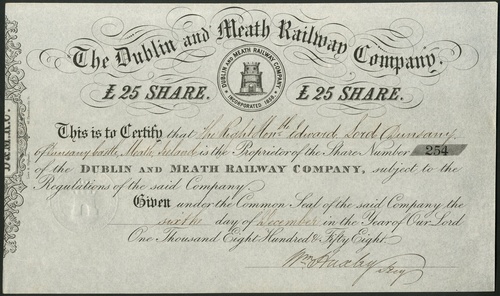 The Dublin and Meath Railway Company.
DUBLIN AND MEATH RAILWAY COMPANY
INCORPORATED 1858
£25 SHARE. £25 SHARE.
This is to Certify that The Right Honble Edward Lord Dunsany
of Dunsany Castle, Meath, Ireland is the Proprietor of the Share Number 254
of the DUBLIN AND MEATH RAILWAY COMPANY, subject to the
Regulations of the said Company.
Given under the Common Seal of the said Company, the
sixth day of December in the Year of Our Lord
One Thousand Eight Hundred & Fifty Eight.
Secy